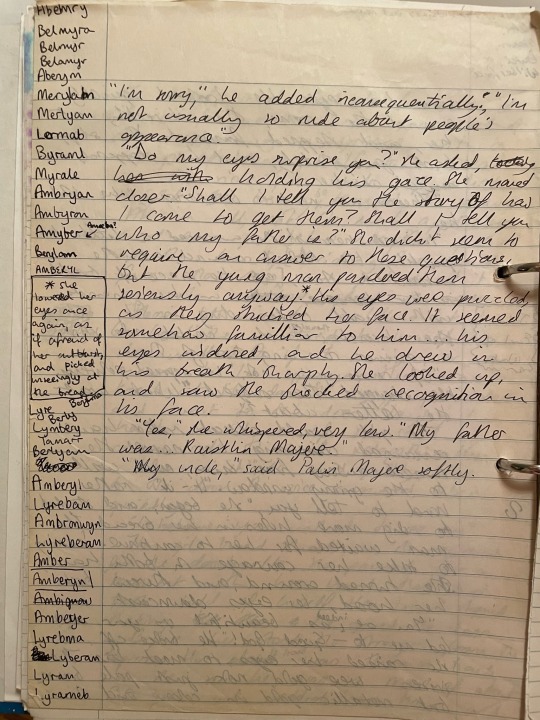 Abemry
Belmyra
Belmyr
Belamyr
Aberym
Merylam
Merlyam
Lermab
Byraml
Myrale
Ambryan
Ambyron
Amyber
Amoeba?
Berylam
AMBERYL
* She
lowered her
eyes once
again, as
if afraid of
her outburst,
and picked
unseeingly at
the bread
Lyre
Beryl
Lymbery
Tamarr
Berlyam
Amberyl
Lyrebam
Ambronwyn
Lyreberam
Amber
Amberyn
Ambignou
Amberjer
Lyrebma
Lyberam
Lyram
Lyrameb
"I'm sorry," he added inconsequentially. "I'm
not usually so rude about people's
appearance."
"Do my eyes surprise you?" she asked,
holding his gaze. She moved
closer "Shall I tell you the story of how
I came to get them? Shall I tell you
who my father is?" She didn't seem to
require an answer to these questions,
but the young man pondered them
seriously anyway.* His eyes were puzzled
as they studied her face. It seemed
somehow familliar to him... his
eyes widened and he drew in
his breath sharply. She looked up,
and saw the shocked recognition in
his face.
"Yes," she whispered, very low. "My father
was... Raistlin Majere."
"My uncle," said Palin Majere softly.